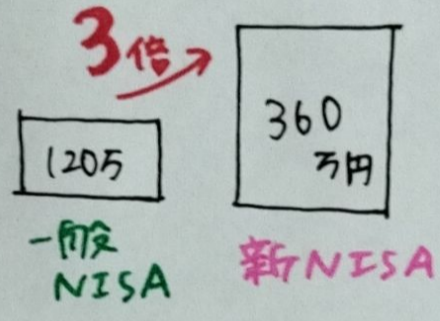 3倍
120万
360
万円
一般
NISA
新NISA